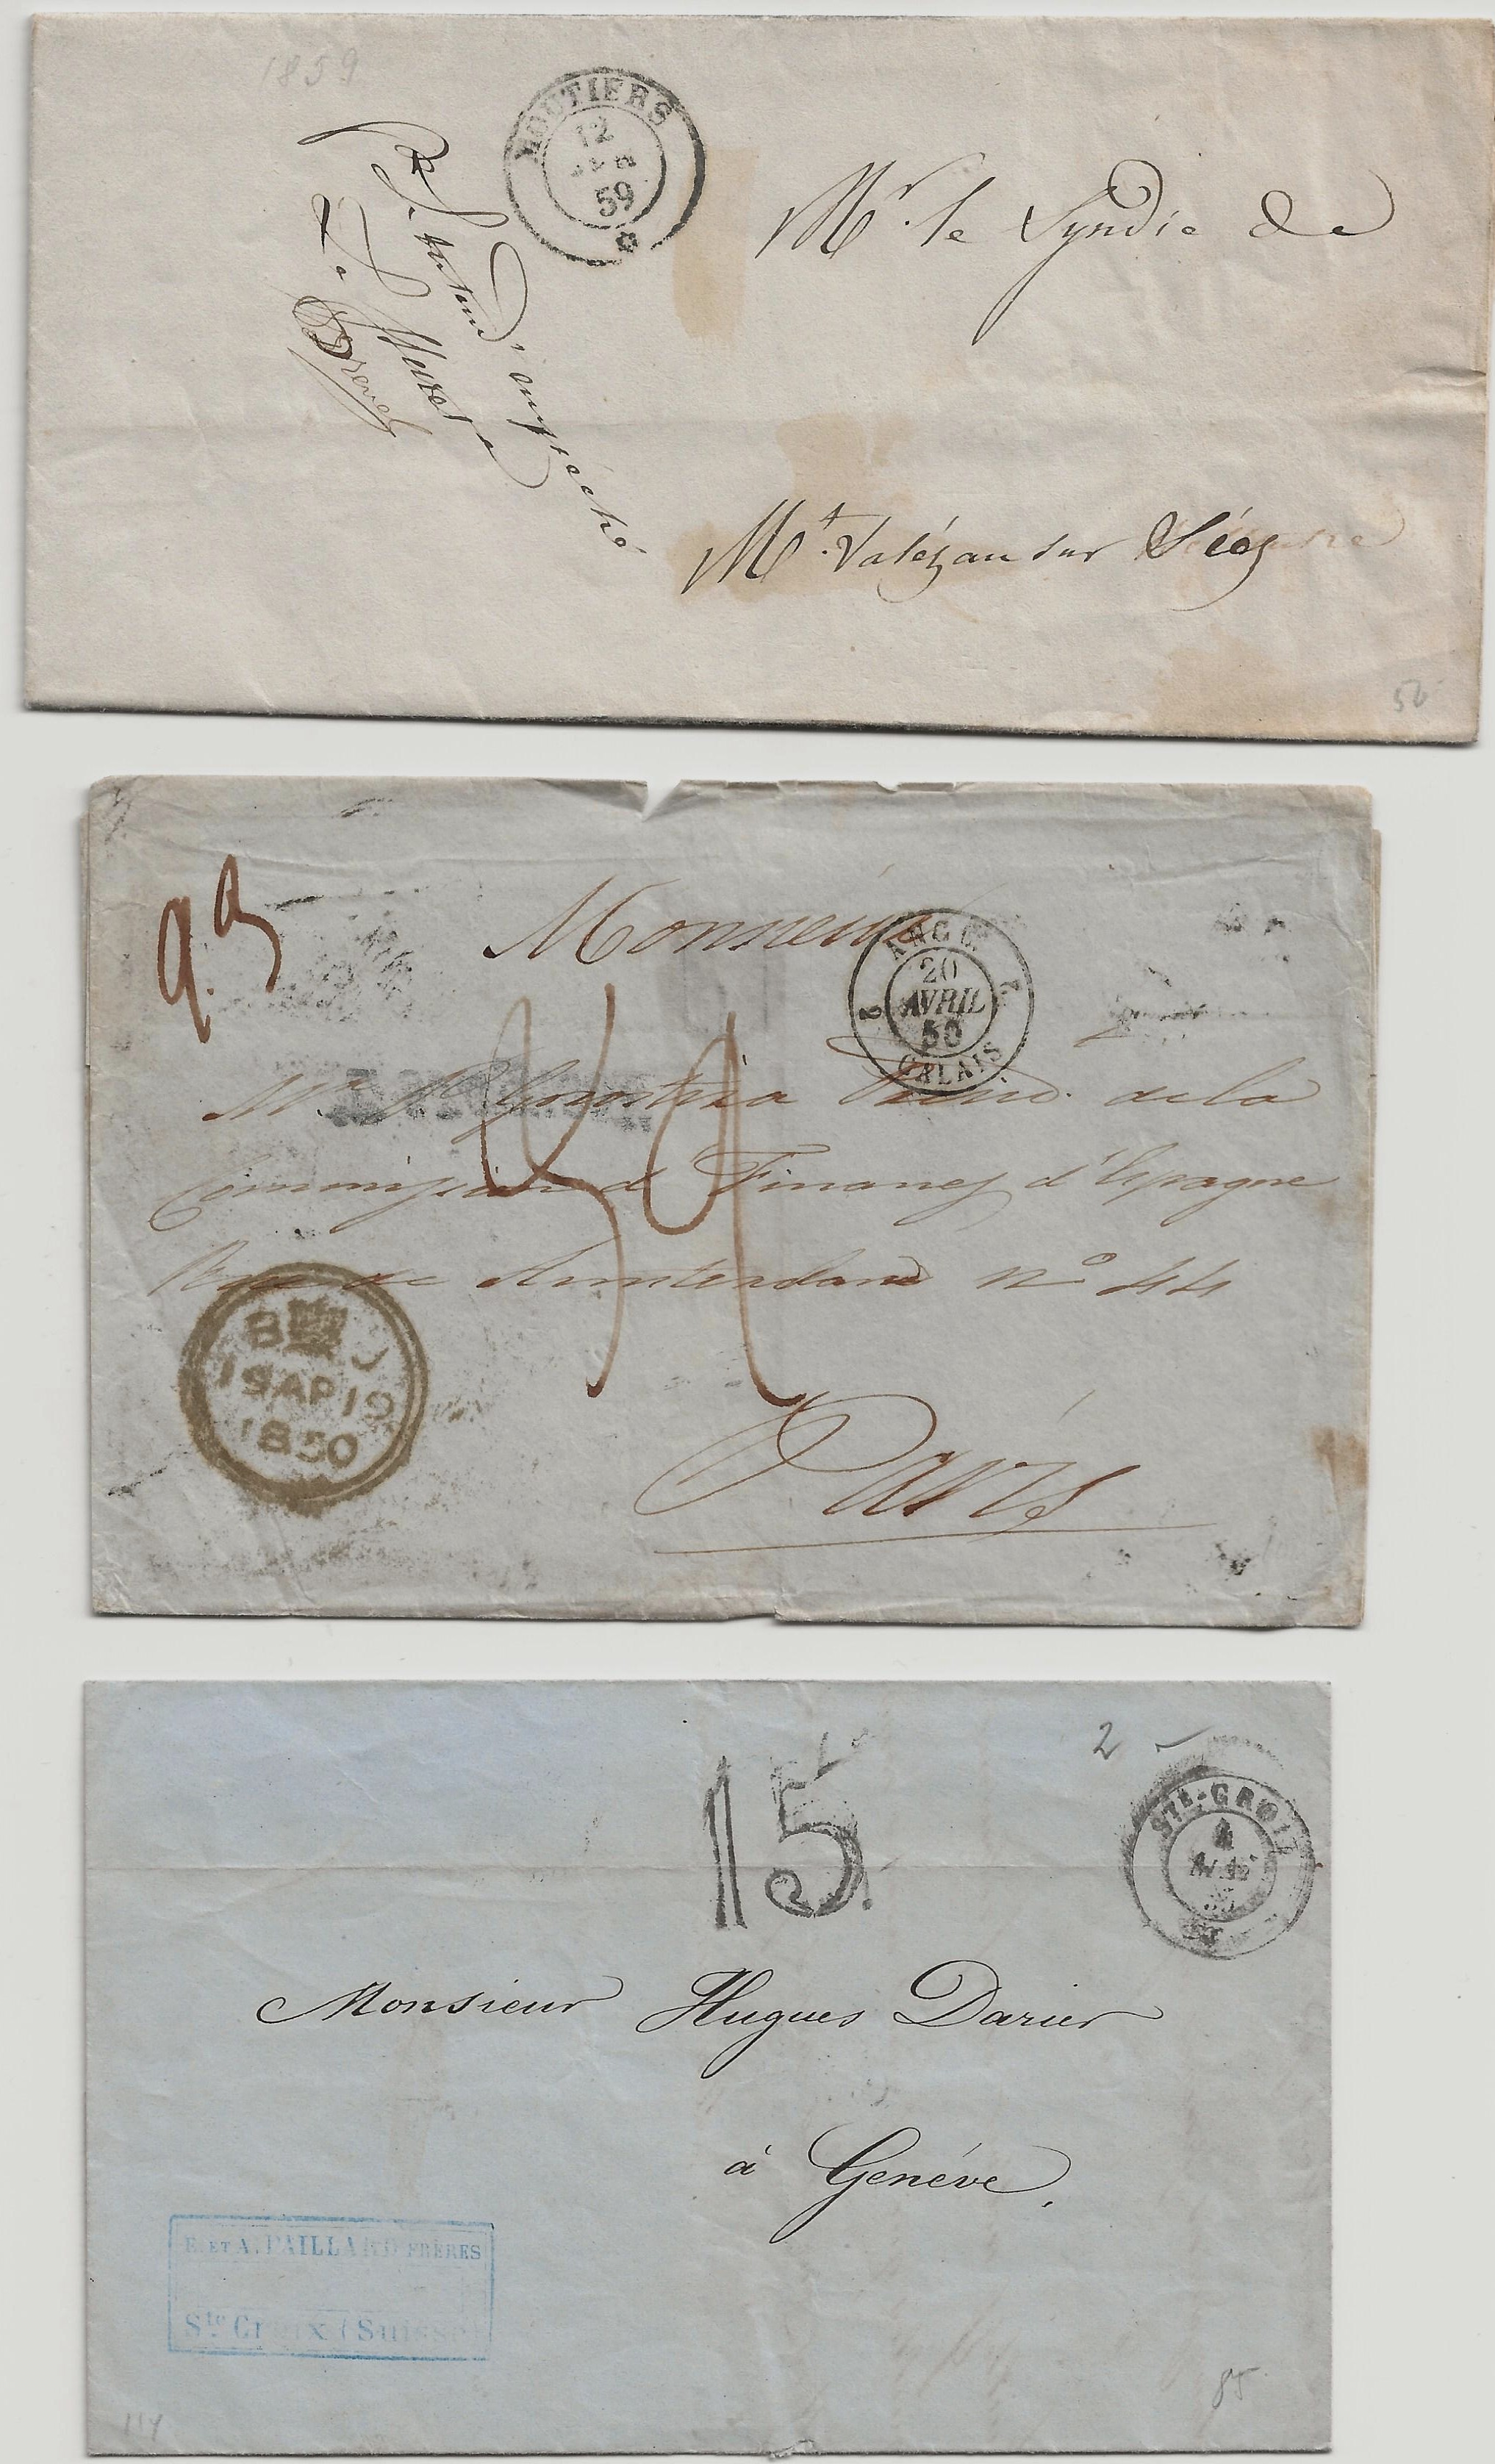 1859
MOUTIERS
12
59
Mr. le Syndic de
Pr. l'Intend. empêché
Le
Mt. Valézan sur Séez
50
9.9
Monsieur
ANGL.
2 2
20
AVRIL
50
CALAIS
Mr. de la
Commission de Finances d'Espagne
Rue de Amsterdam No 44
B J
19 AP 19
1850
Paris
15
2
STE-CROIX
4
Monsieur Hugues Darier
à Genève.
E. ET A. PAILLARD FRÈRES
Ste. Croix (Suisse)
114
85